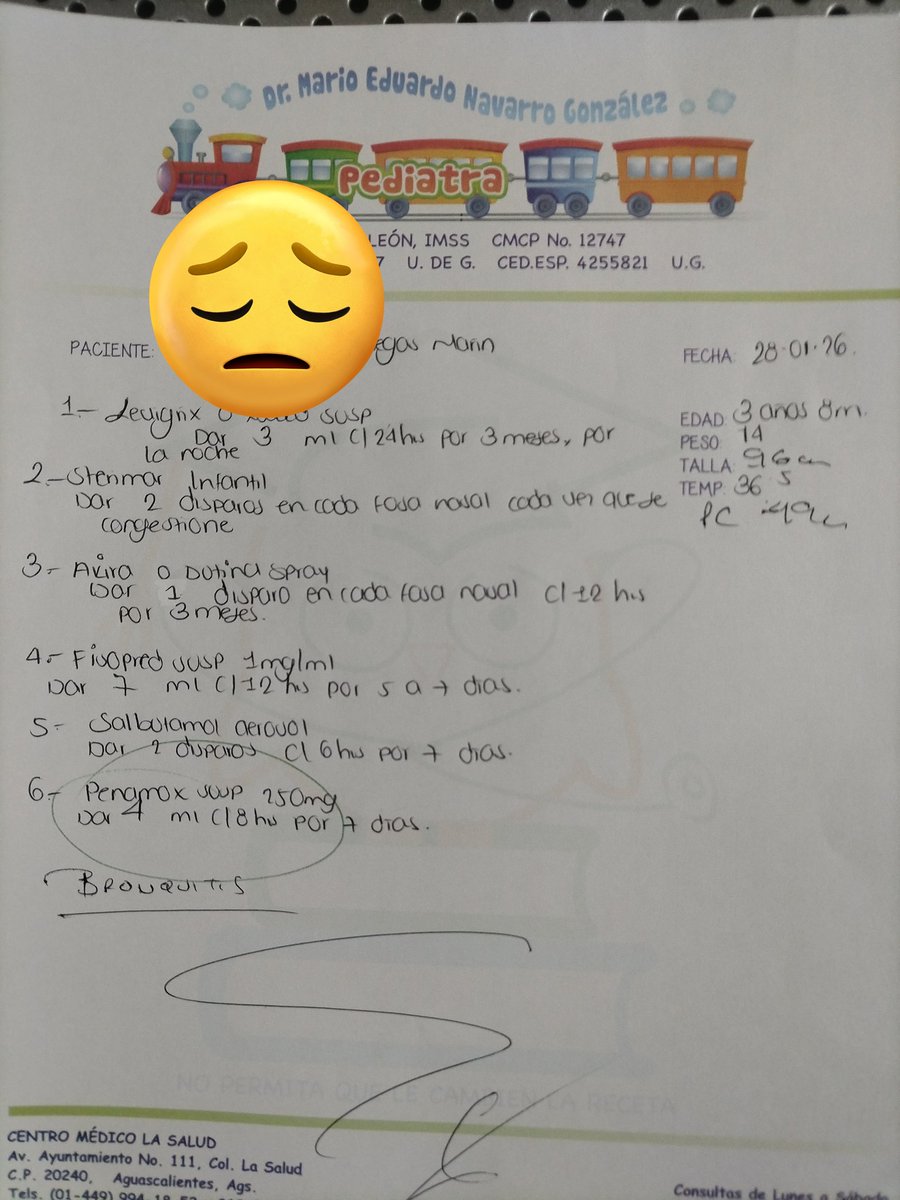 Dr. Mario Eduardo Navarro González
Pediatra
LEÓN, IMSS CMCP No. 12747
7 U. DE G. CED.ESP. 4255821 U.G.
PACIENTE: egas Marin
FECHA: 28-01-26.
EDAD: 3 años 8m.
PESO: 14
TALLA: 96cm
TEMP: 36 5
PC 49cm
1.- susp
Dar 3 ml c/24hrs por 3 meses, por
la noche
2.- Sterimar Infantil
Dar 2 disparos en cada fosa nasal cada vez que se
congestione
3.- o spray
Dar 1 disparo en cada fosa nasal c/12 hrs
por 3 meses.
4.- Fisopred susp 1mg/ml
Dar 7 ml c/12 hrs por 5 a 7 dias.
5.- Salbutamol aerosol
Dar 2 disparos c/6hrs por 7 dias.
6.- Penamox susp 250mg
Dar 4 ml c/8hs por 7 dias.
BRONQUITIS
NO PERMITA QUE LE CAMBIEN LA RECETA
CENTRO MÉDICO LA SALUD
Av. Ayuntamiento No. 111, Col. La Salud
C.P. 20240, Aguascalientes, Ags.
Tels. (01-449) 994
Consultas de Lunes a Sábado